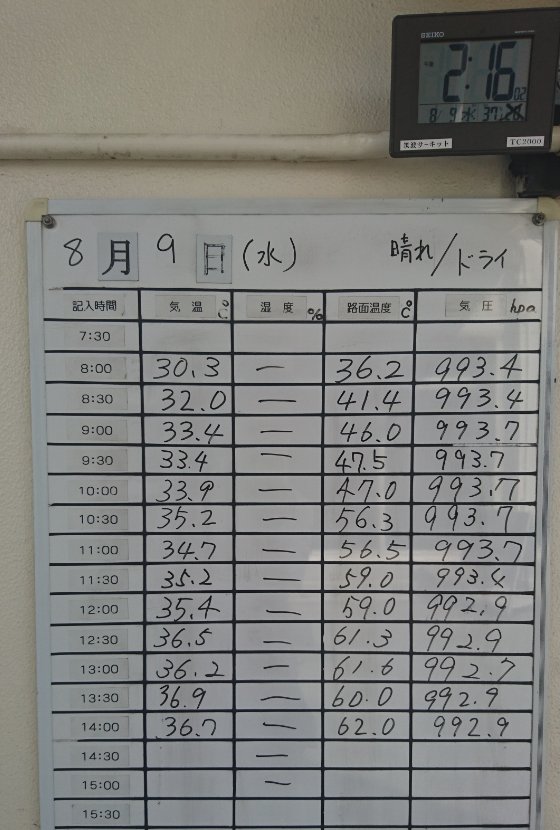 SEIKO
2:16 02
8/ 9 水 37
筑波サーキット TC2000
8 月 9 日 (水) 晴れ/ドライ
記入時間 気温 ℃ 湿度 % 路面温度 ℃ 気圧 hpa
7:30
8:00 30.3 — 36.2 993.4
8:30 32.0 — 41.4 993.4
9:00 33.4 — 46.0 993.7
9:30 33.4 — 47.5 993.7
10:00 33.9 — 47.0 993.7
10:30 35.2 — 56.3 993.7
11:00 34.7 — 56.5 993.7
11:30 35.2 — 59.0 993.4
12:00 35.4 — 59.0 992.9
12:30 36.5 — 61.3 992.9
13:00 36.2 — 61.6 992.7
13:30 36.9 — 60.0 992.9
14:00 36.7 — 62.0 992.9
14:30 —
15:00 —
15:30